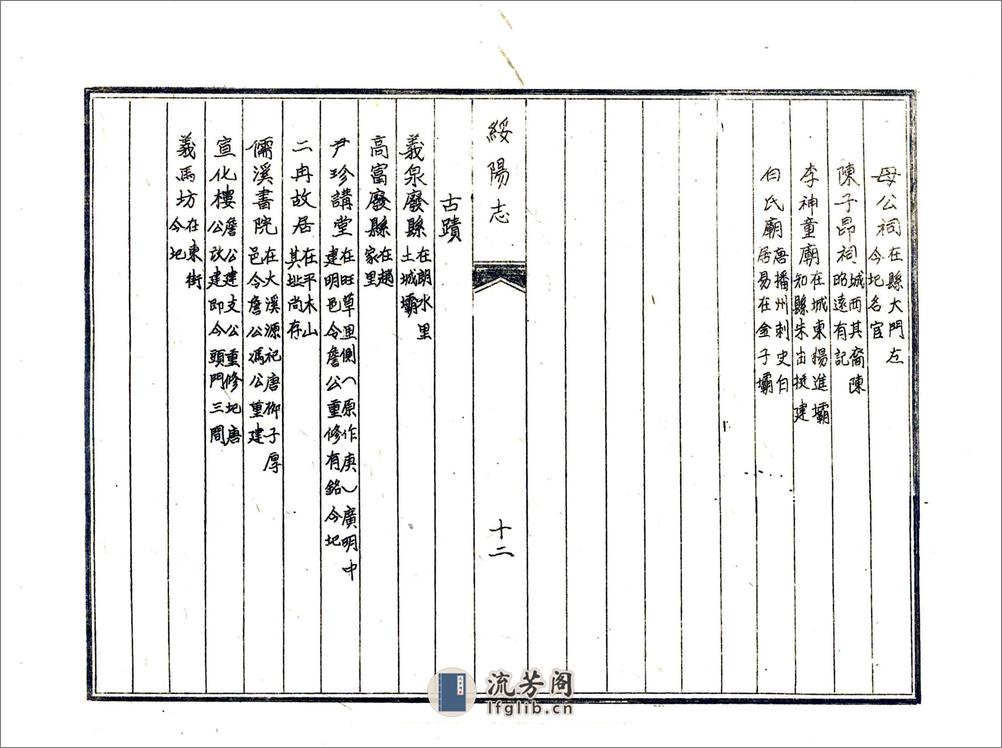 母公祠在縣大門左今圮名宦
陳子昂祠城西其裔陳昭遠有記
李神童廟在城東楊進壩知縣朱由挺建
白氏廟唐播州刺史白居易在金子壩
綏陽志
十二
古蹟
義泉廢縣在朗水里土城壩
高富廢縣在趙家里
尹珍講堂在旺草里側（原作庚）廣明中建明邑令詹公重修有銘今圮
二冉故居在平木山其址尚存
儒溪書院在大溪源祀唐柳子厚邑令詹公馮公重建
宣化樓詹公建支公重修圮唐公改建即今頭門三間
義馬坊在東街今圮
流芳阁
lfglib.cn